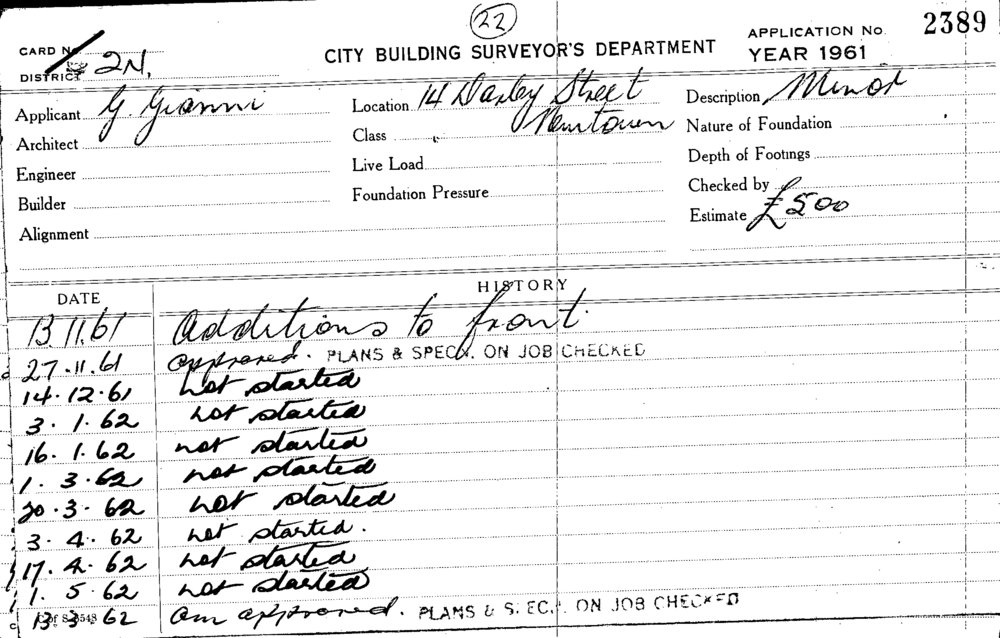 22
CITY BUILDING SURVEYOR'S DEPARTMENT
APPLICATION No. 2389
YEAR 1961
CARD No
DISTRICT 2N.
Applicant G. Gianni
Location 14 Darley Street
Newtown
Description Minor
Architect
Class
Nature of Foundation
Engineer
Live Load
Depth of Footings
Builder
Foundation Pressure
Checked by
Alignment
Estimate £500
DATE HISTORY
13.11.61 Additions to front.
27.11.61 approved. PLANS & SPECN. ON JOB CHECKED
14.12.61 not started
3.1.62 not started
16.1.62 not started
1.3.62 not started
20.3.62 not started
3.4.62 not started.
17.4.62 not started
1.5.62 not started
13.3.62 approved. PLANS & SPEC. ON JOB CHECKED